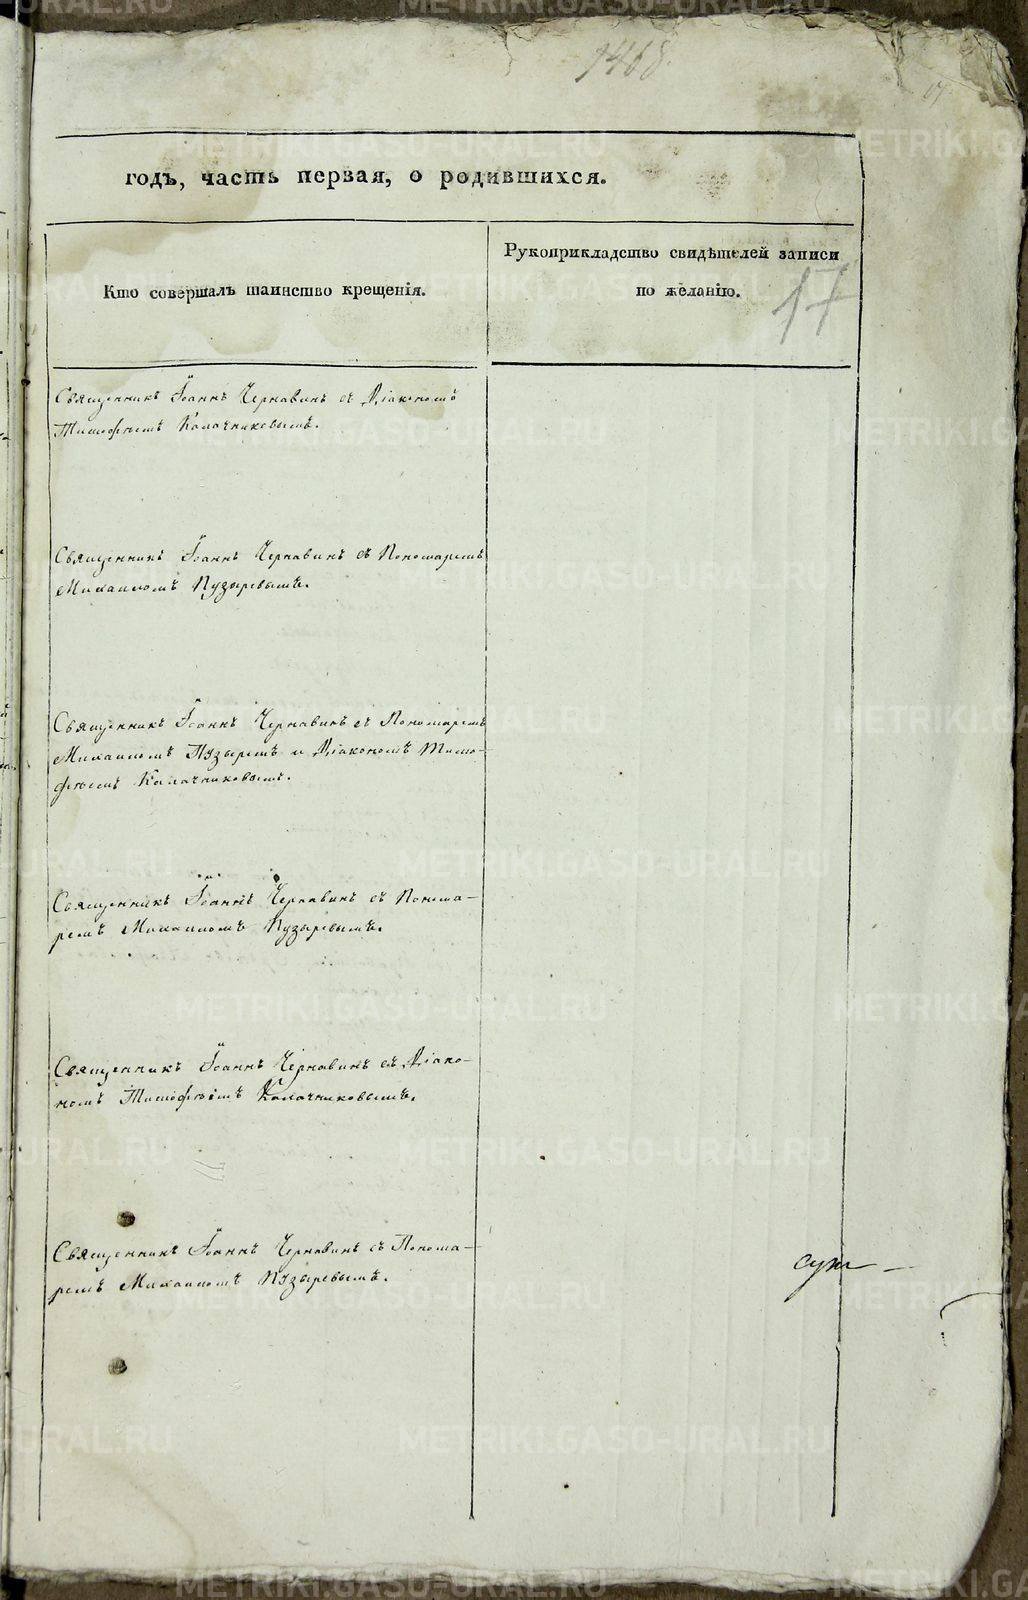 1468.
17
годъ, часть первая, о родившихся.
Кто совершалъ таинство крещенія.
Рукоприкладство свидѣтелей записи
по желанію.
17
Священникъ Іоаннъ Чернавинъ съ Діакономъ
Тимофѣемъ Калачниковымъ.
Священникъ Іоаннъ Чернавинъ съ Пономаремъ
Михаиломъ Пузыревымъ.
Священникъ Іоаннъ Чернавинъ съ Пономаремъ
Михаиломъ Пузыремъ и Діакономъ Тимо-
фѣемъ Калачниковымъ.
Священникъ Іоаннъ Чернавинъ съ Понома-
ремъ Михаиломъ Пузыревымъ.
Священникъ Іоаннъ Чернавинъ съ Діако-
номъ Тимофѣемъ Калачниковымъ.
Священникъ Іоаннъ Чернавинъ съ Понома-
ремъ Михаиломъ Пузыревымъ.
METRIKI.GASO-URAL.RU